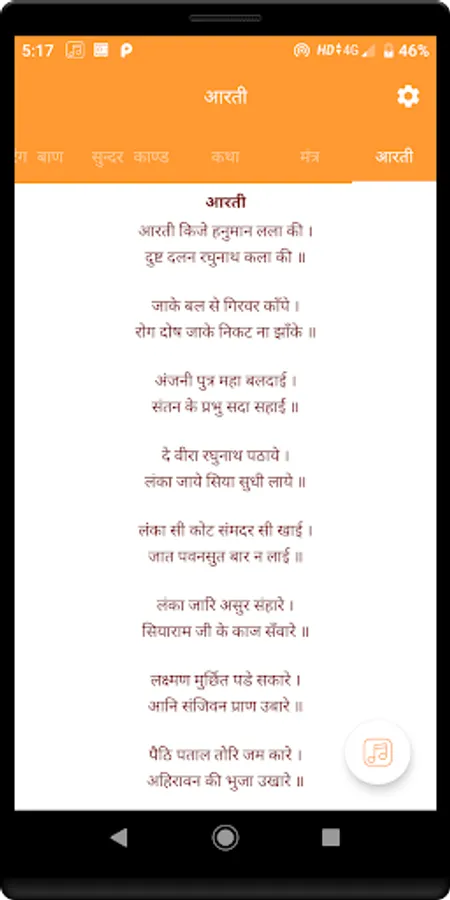 5:17 HD 4G 46%
आरती
बाण सुन्दर काण्ड कथा मंत्र आरती
आरती
आरती किजे हनुमान लला की ।
दुष्ट दलन रघुनाथ कला की ॥
जाके बल से गिरवर काँपे ।
रोग दोष जाके निकट ना झाँके ॥
अंजनी पुत्र महा बलदाई ।
संतन के प्रभु सदा सहाई ॥
दे वीरा रघुनाथ पठाये ।
लंका जाये सिया सुधी लाये ॥
लंका सी कोट संमदर सी खाई ।
जात पवनसुत बार न लाई ॥
लंका जारि असुर संहारे ।
सियाराम जी के काज सँवारे ॥
लक्ष्मण मुर्छित पडे सकारे ।
आनि संजिवन प्राण उबारे ॥
पैठि पताल तोरि जम कारे ।
अहिरावन की भुजा उखारे ॥